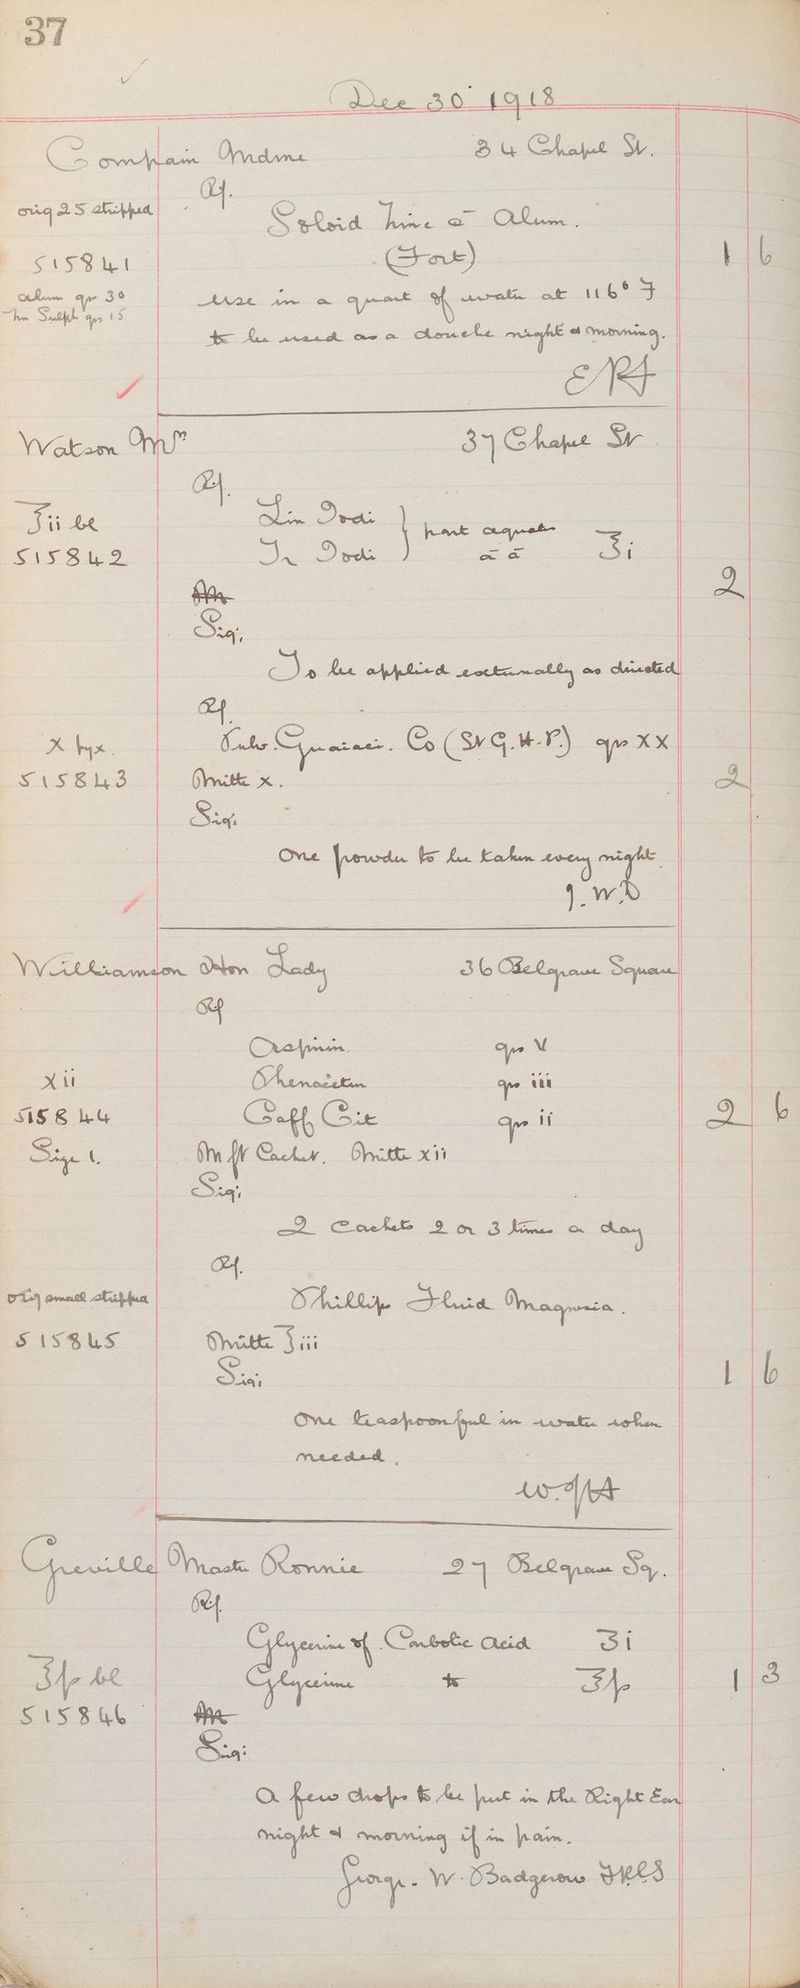 37
Dec 30 1918
Compain Mdme 34 Chapel St.
Rx.
orig 25 stripped
Soloid Zinc c̄ Alum.
515841 (Fort) 1 6
alum grs 30 use in a quart of water at 116° F
Zn Sulph grs 15
to be used as a douche night & morning.
Watson Mrs 37 Chapel St
Rx.
℥ii bl Lin Iodi } part aequales
515842 Tr Iodi } āā ℥i
M 2
Sig:
To be applied externally as directed
Rx.
x pyx. Pulv. Guaiaci. Co (St G. H. P.) grs XX
515843 Mitte x. 2
Sig:
One powder to be taken every night.
J. W. D
Williamson Hon Lady 36 Belgrave Square
Rx
Aspirin grs V
xii Phenacetin grs iii
515844 Caff Cit grs ii 2 6
Size 1. M ft Cachet. Mitte xii
Sig:
2 cachets 2 or 3 times a day
Rx.
orig small stripped Phillips Fluid Magnesia.
515845 Mitte ℥iii
Sig: 1 6
One teaspoonful in water when
needed.
Greville Master Ronnie 27 Belgrave Sq.
Rx.
Glycerine of Carbolic Acid ʒi
℥ß bl Glycerine to ℥ß 1 3
515846 M
Sig:
A few drops to be put in the Right Ear
night & morning if in pain.
George. W. Badgerow FRCS